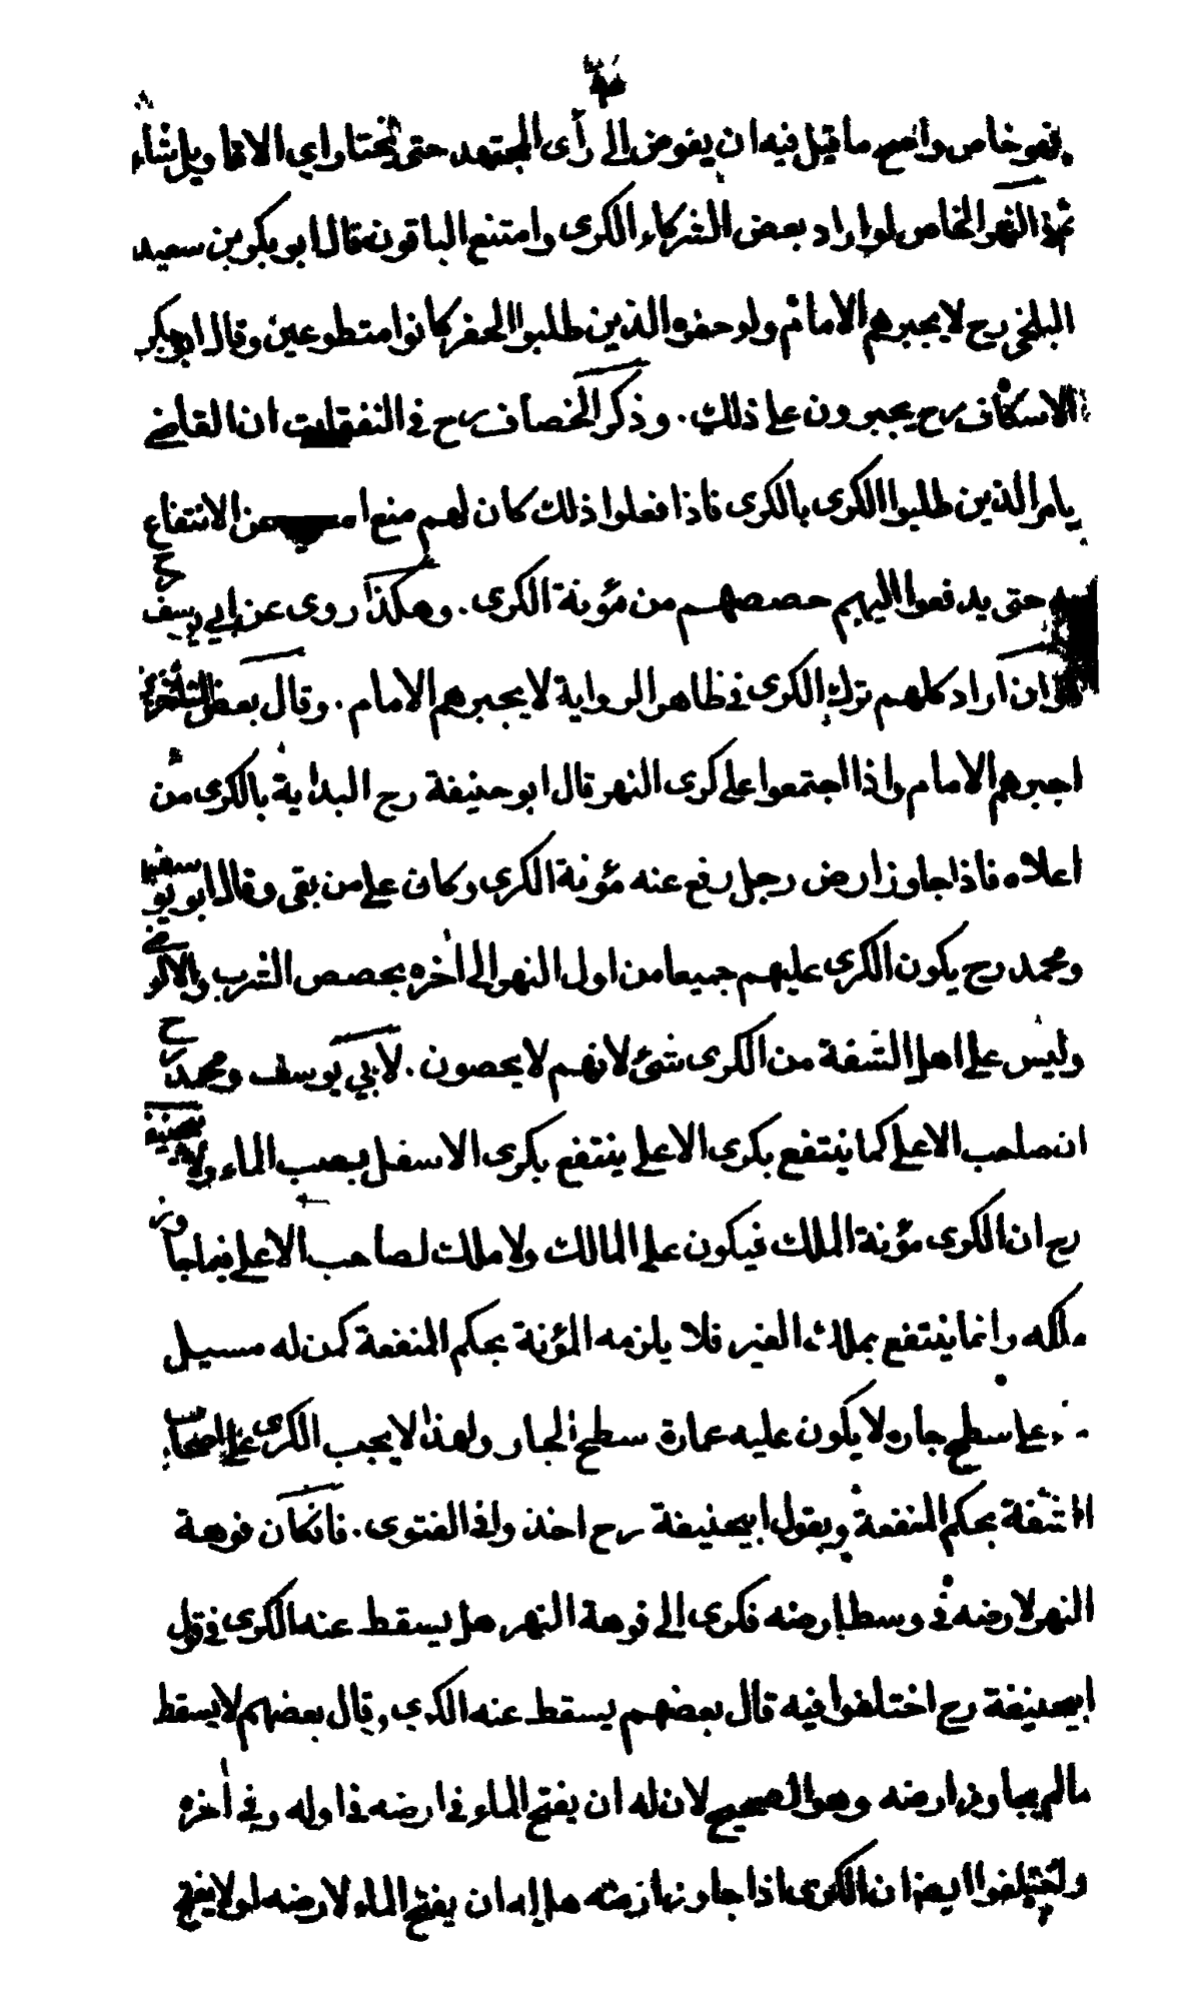 فهو خاص واصح ما قيل فيه ان يفوض الى رأى المجتهد حتى يختار اي الاقاويل شاء
ثم في النهر الخاص لو اراد بعض الشركاء الكرى وامتنع الباقون قال ابو بكر بن سعيد
البلخي رح لا يجبرهم الامام ولو حفره الذين طلبوا الحفر كانوا متطوعين وقال ابو بكر
الاسكاف رح يجبرون على ذلك . وذكر الخصاف رح في النفقات ان القاضي
يامر الذين طلبوا الكرى بالكرى فاذا فعلوا ذلك كان لهم منع من الانتفاع
به حتى يدفعوا اليهم حصصهم من مؤنة الكرى . وهكذا روى عن ابي يوسف رح
وان اراد كلهم ترك الكرى في ظاهر الرواية لا يجبرهم الامام . وقال بعض المتأخرين
اجبرهم الامام واذا اجتمعوا على كرى النهر قال ابو حنيفة رح البداية بالكرى من
اعلاه فاذا جاوز ارض رجل رفع عنه مؤنة الكرى وكان على من بقى وقال ابو يوسف
ومحمد رح يكون الكرى عليهم جميعا من اول النهر الى اخره بحصص الشرب والارضي
وليس على اهل الشفة من الكرى شئ لانهم لا يحصون . لابي يوسف ومحمد رح
ان صاحب الاعلى كما ينتفع بكرى الاعلى ينتفع بكرى الاسفل بصب الماء ولابيحنيفة
رح ان الكرى مؤنة الملك فيكون على المالك ولا ملك لصاحب الاعلى فيما جاوز
ملكه وانما ينتفع بملك الغير فلا يلزمه المؤنة بحكم المنفعة كمن له مسيل
على سطح جاره لا يكون عليه عمارة سطح الجار ولهذا لا يجب الكرى على اصحاب
الشفة بحكم المنفعة وبقول ابيحنيفة رح اخذوا في الفتوى . فانكان فوهة
النهر لارضه في وسط ارضه فكرى الى فوهة النهر هل يسقط عنه الكرى في قول
ابيحنيفة رح اختلفوا فيه قال بعضهم يسقط عنه الكرى وقال بعضهم لا يسقط
مالم يجاوز ارضه وهو الصحيح لان له ان يفتح الماء في ارضه في اوله وفي اخره
واختلفوا ايضا ان الكرى اذا جاوز ارضه هل له ان يفتح الماء لارضه او لا يفتح